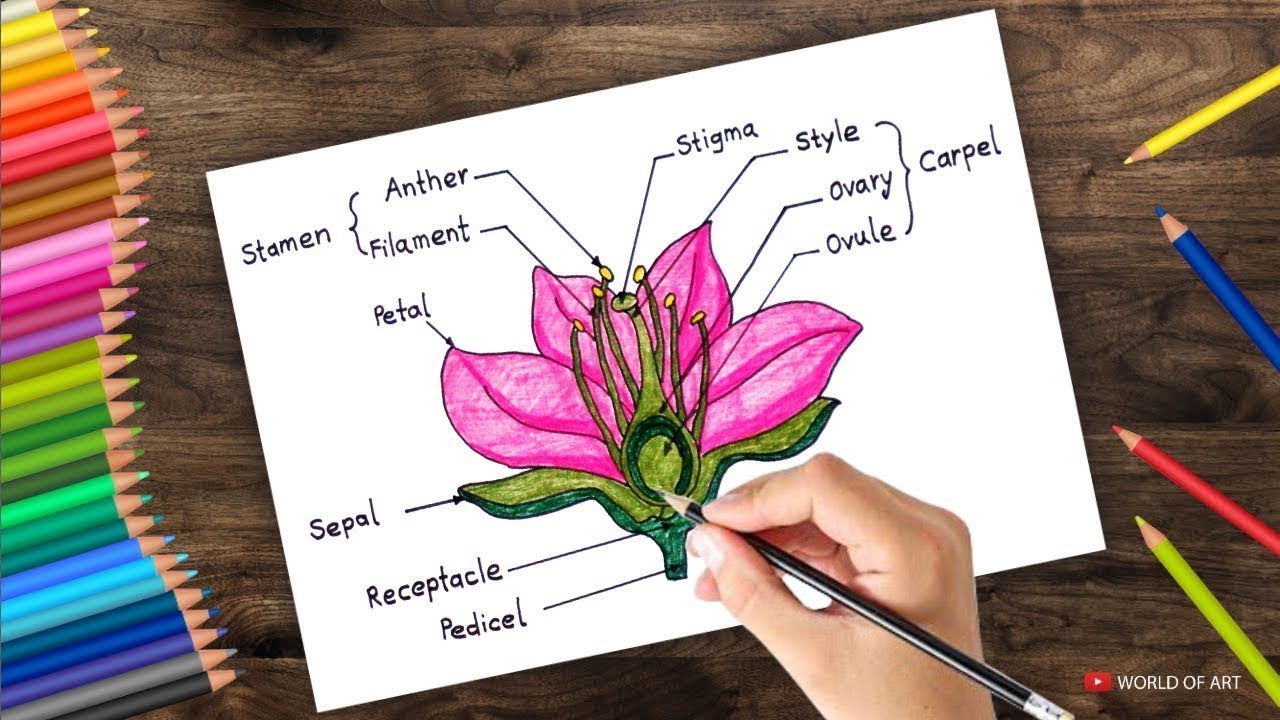 Stigma
Style
Carpel
Anther
Ovary
Stamen
Filament
Ovule
Petal
Sepal
Receptacle
Pedicel
WORLD OF ART